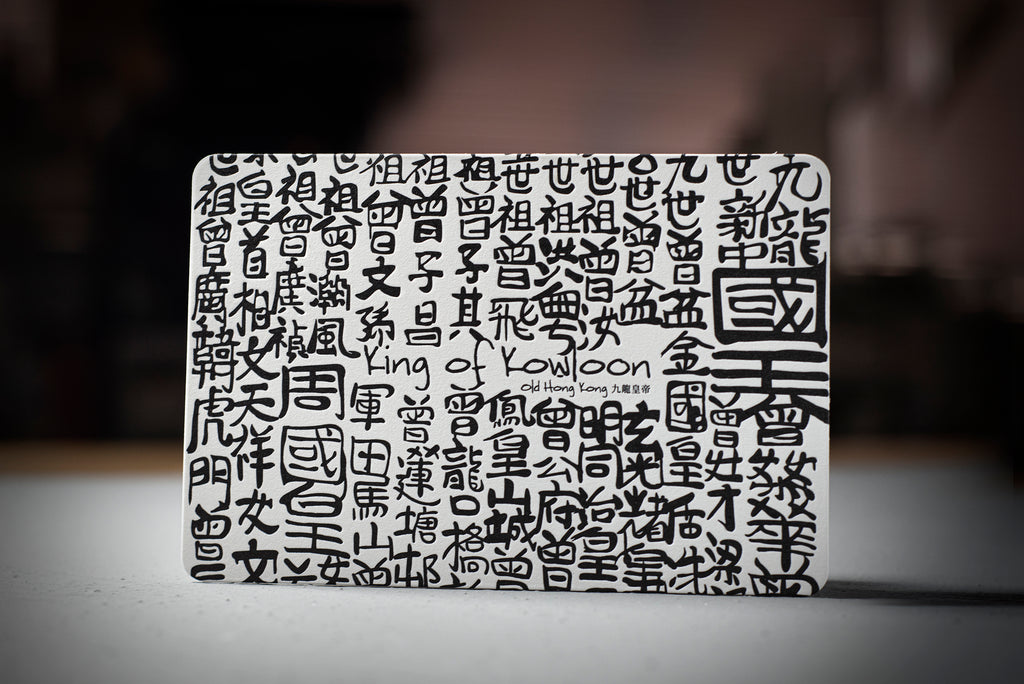 九龍
世新中
國王
曾
曾女才梁
九世曾盆金國皇
世曾盆
光緒皇
世祖曾汝
明同治皇
世祖洪粵
曾公府曾
世祖曾飛
鳳皇山城曾
祖曾子其
曾龍口格
祖曾子昌
曾蓮塘邨
祖曾文孫
軍田馬山曾
世祖曾風
周國皇王
祖曾廣禎
皇首相文天祥女文
世祖曾廣韓虎門曾
King of Kowloon
Old Hong Kong 九龍皇帝